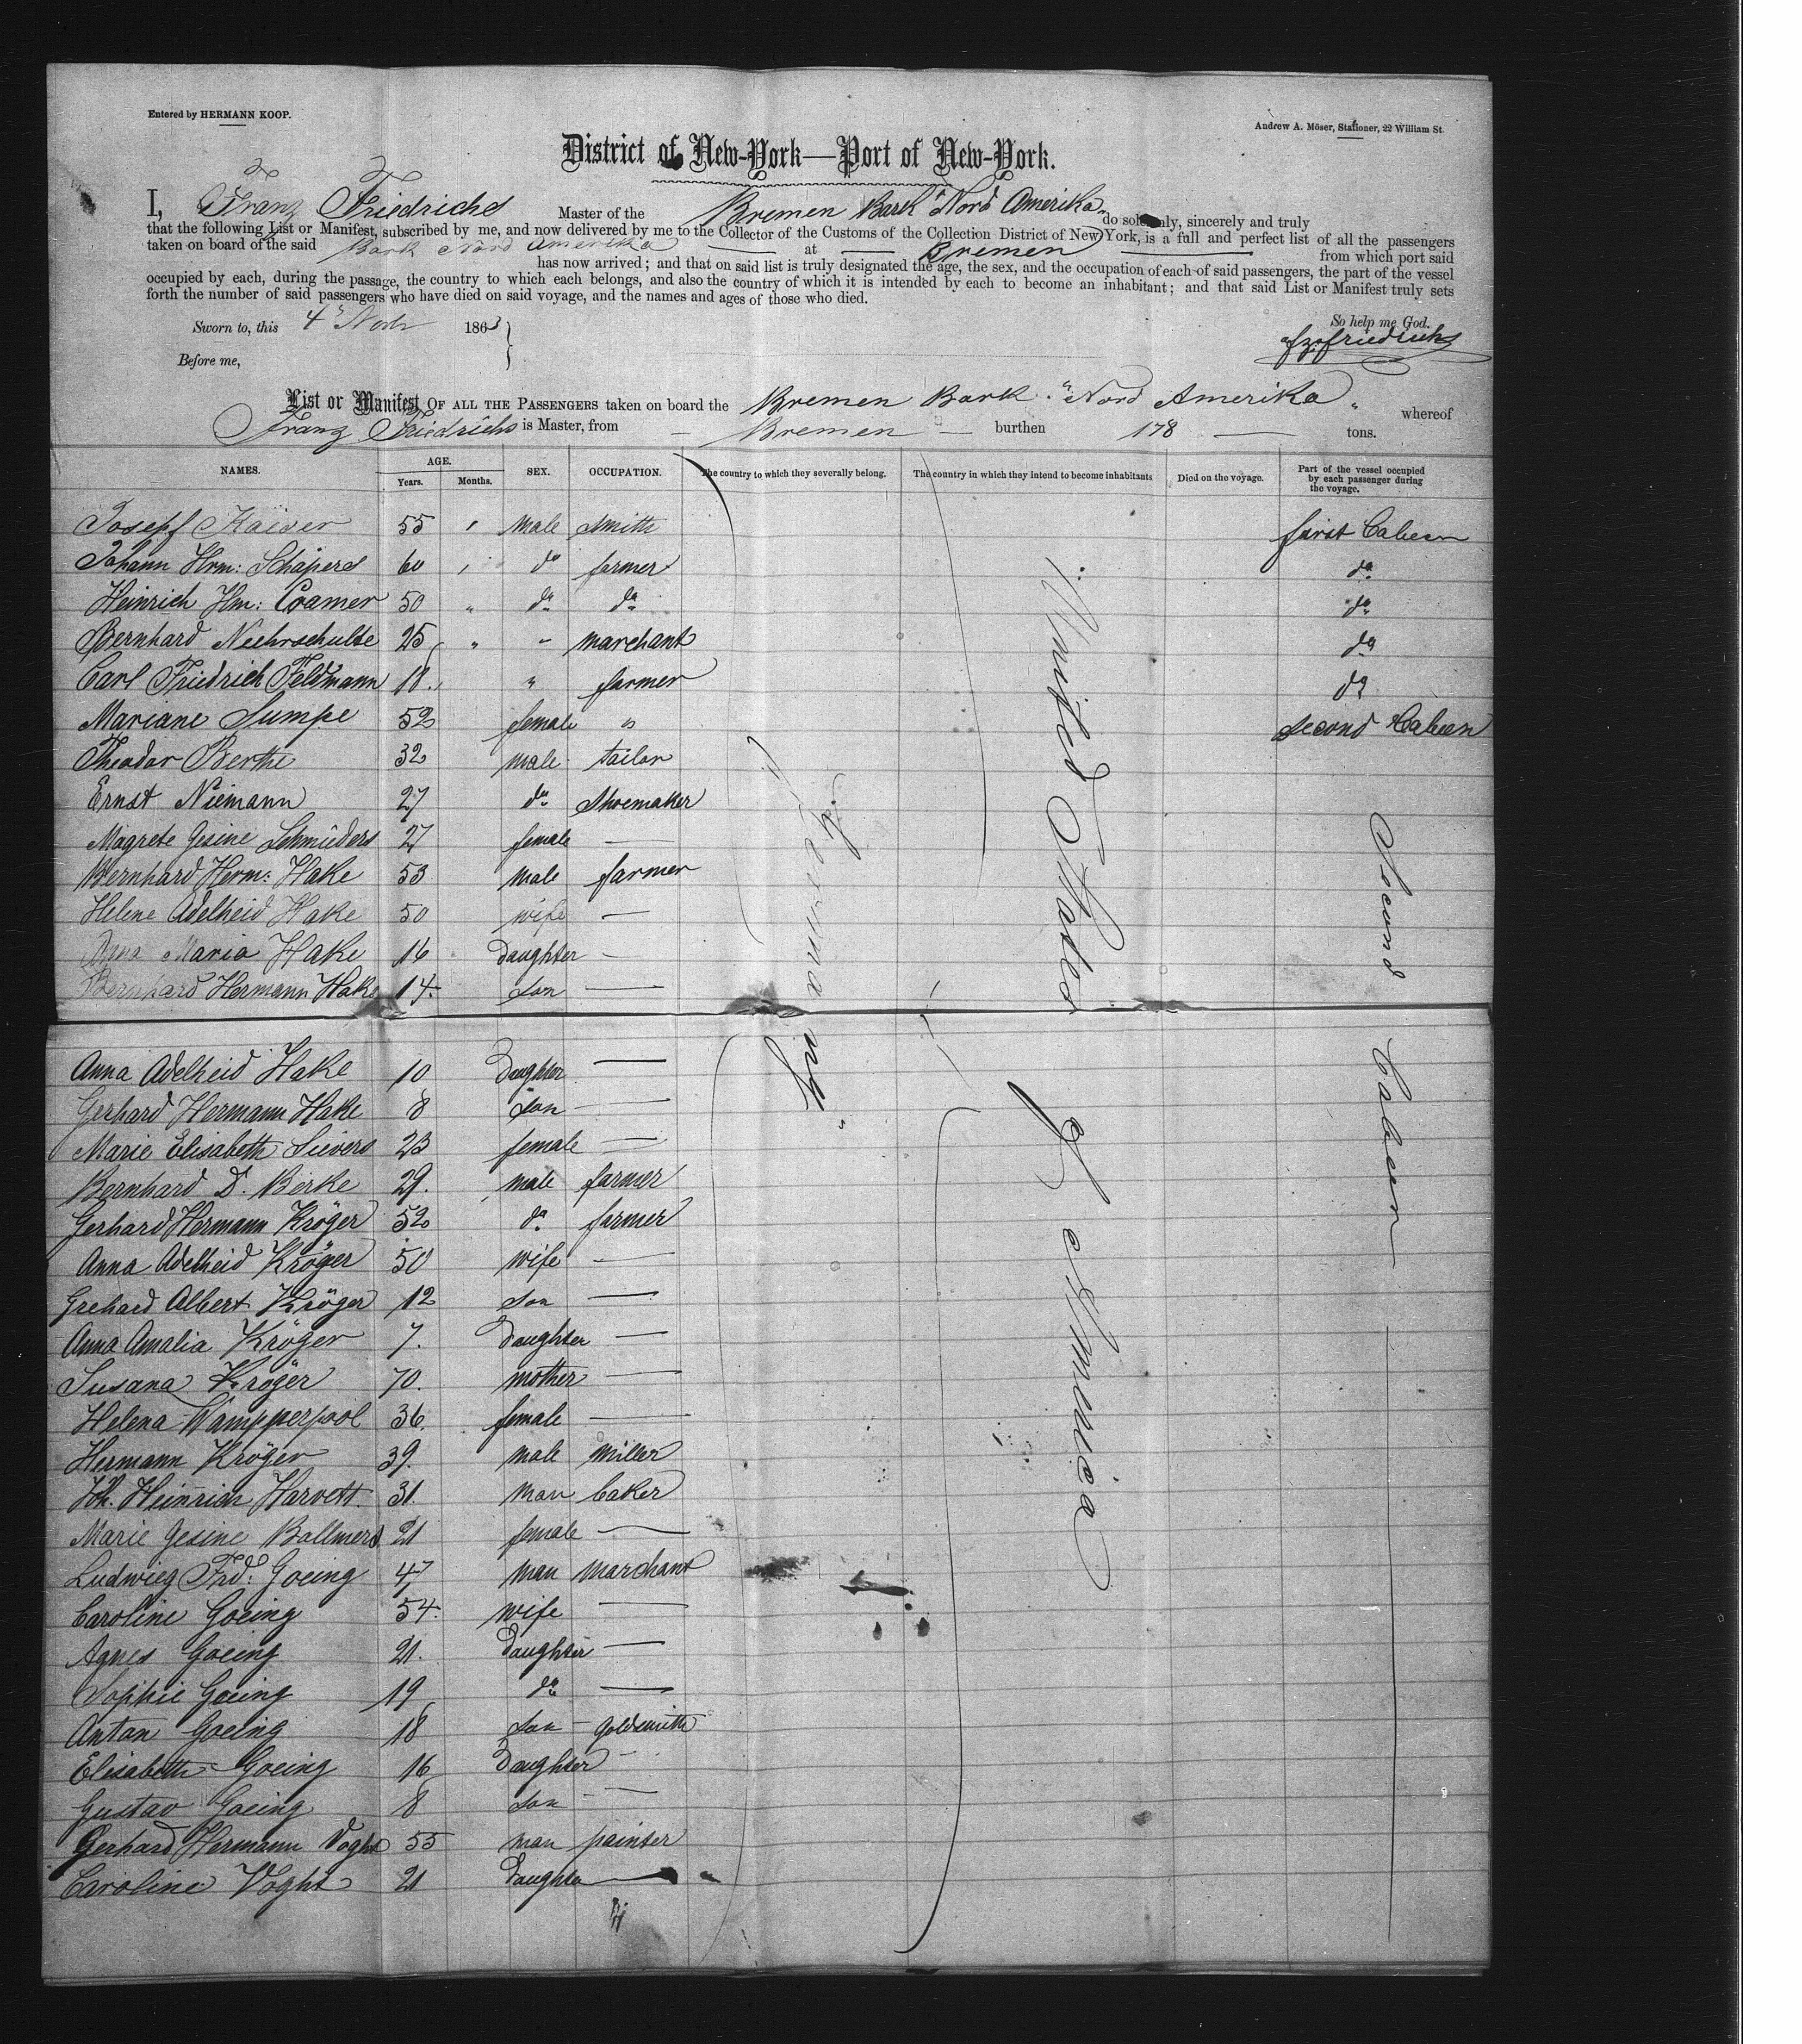 Entered by HERMANN KOOP.
Andrew A. Möser, Stationer, 22 William St.
District of New-York—Port of New-York.
I, Franz Friedrichs Master of the Bremen Bark "Nord Amerika" do solemnly, sincerely and truly
that the following List or Manifest, subscribed by me, and now delivered by me to the Collector of the Customs of the Collection District of New York, is a full and perfect list of all the passengers
taken on board of the said Bark Nord Amerika — at — Bremen — from which port said
has now arrived; and that on said list is truly designated the age, the sex, and the occupation of each of said passengers, the part of the vessel
occupied by each, during the passage, the country to which each belongs, and also the country of which it is intended by each to become an inhabitant; and that said List or Manifest truly sets
forth the number of said passengers who have died on said voyage, and the names and ages of those who died.
Sworn to, this 4 1863 So help me God.
Before me, fzfriedrichs
List or Manifest OF ALL THE PASSENGERS taken on board the Bremen Bark "Nord Amerika" whereof
Franz Friedrichs is Master, from — Bremen — burthen 178 — tons.
NAMES. AGE. Years. Months. SEX. OCCUPATION. The country to which they severally belong. The country in which they intend to become inhabitants Died on the voyage. Part of the vessel occupied by each passenger during the voyage.
Joseff Kaiser 55 " male smith first Cabeen
Johann Hrm: Schäpers 60 " do farmer do
Heinrich Hm: Cramer 50 " do do do
Bernhard Niehrschulte 25 " " marchant do
Carl Friedrich Feldmann 18. " farmer do
Mariane Sumpe 52 female " second Cabeen
Theodor Berthe 32 male tailor
Ernst Niemann 27 do Shoemaker
Magrete Gesine Schmieders 27 female —
Bernhard Herm: Hake 53 male farmer
Helene Adelheid Hake 50 wife —
Anna Maria Hake 16 Daughter —
Bernhard Hermann Hake 14. son —
Anna Adelheid Hake 10 Daughter —
Gerhard Hermann Hake 8 son —
Marie Elisabeth Sievers 23 female —
Bernhard D. Birke 29. male farmer
Gerhard Hermann Kröger 52 do farmer
Anna Adelheid Kröger 50 wife —
Grehard Albert Kröger 12 son —
Anna Amalia Kröger 7. Daughter —
Susana Kröger 70. mother —
Helena Wampperpool 36. female —
Hermann Kröger 39. male miller
Joh. Heinrich Harvett 31. man baker
Marie Gesine Bollmers 21 female —
Ludwieg Frd: Goeing 47 man marchant
Caroline Goeing 54. wife —
Agnes Goeing 21. Daughter —
Sophie Goeing 19 do —
Anton Goeing 18 son — Goldsmith
Elisabeth Goeing 16 Daughter —
Gustav Goeing 8 son —
Gerhard Hermann Voght 55 man painter
Caroline Voght 21 Daughter —
Germany
United States of America
Second Cabeen